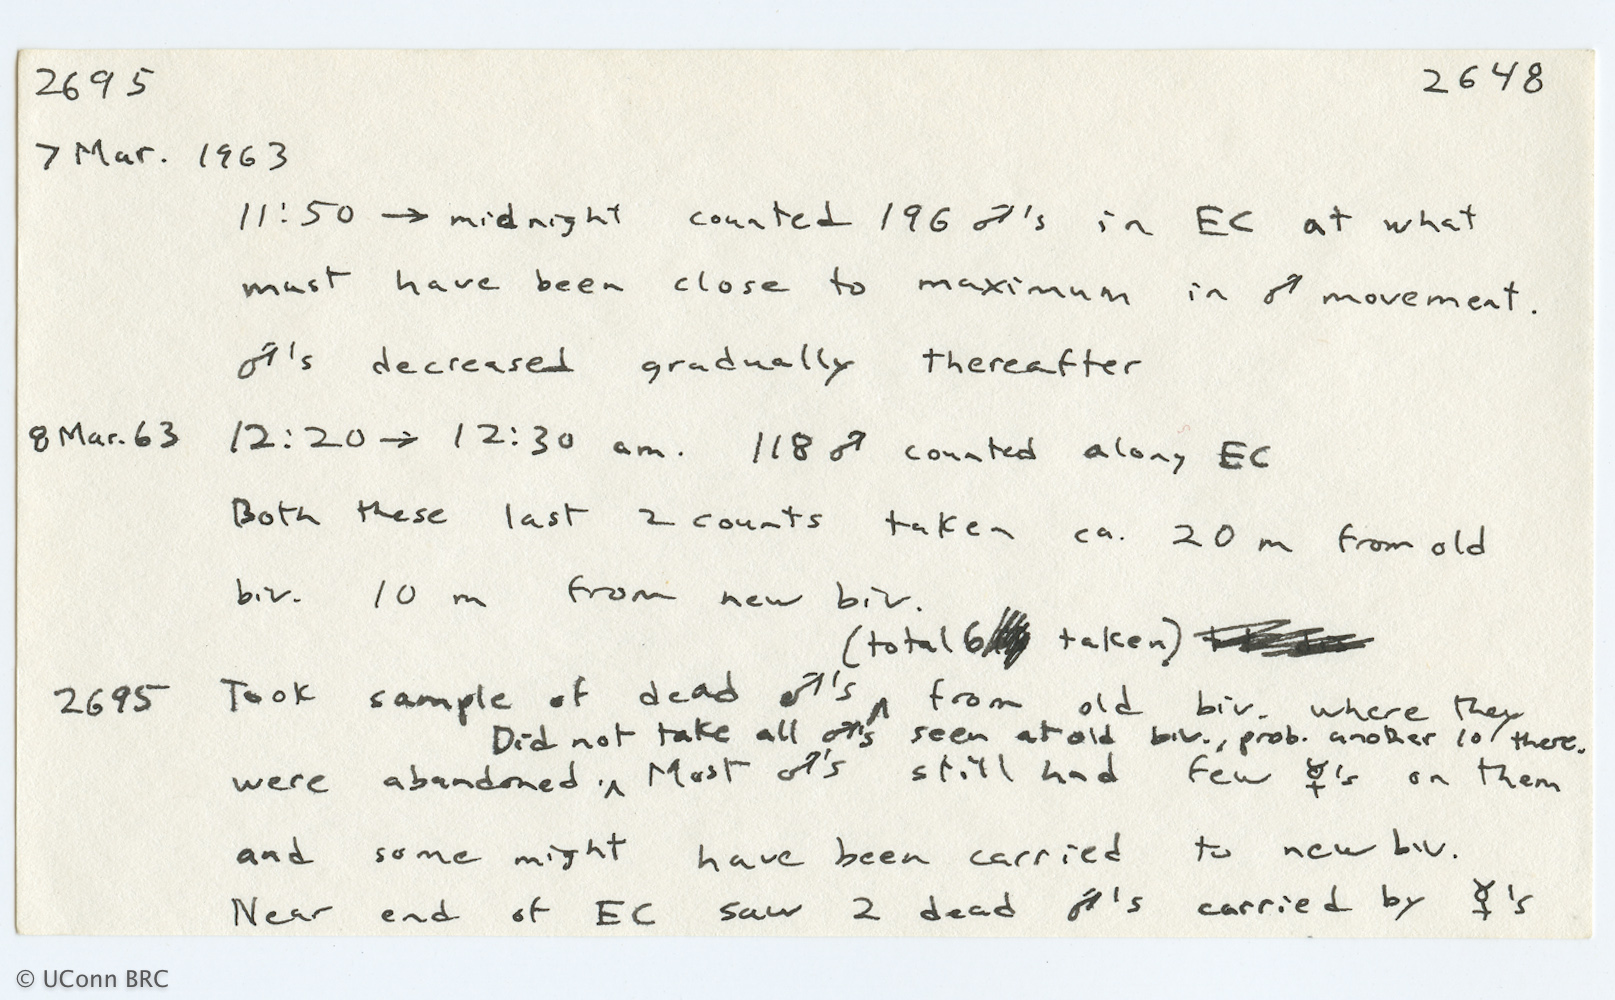 2695 2648
7 Mar. 1963
11:50 → midnight counted 196 ♂'s in EC at what
must have been close to maximum in ♂ movement.
♂'s decreased gradually thereafter
8 Mar. 63 12:20 → 12:30 am. 118 ♂ counted along EC
Both these last 2 counts taken ca. 20 m from old
biv. 10 m from new biv.
(total 6 taken)
2695 Took sample of dead ♂'s ^ from old biv. where they
Did not take all ♂'s seen at old biv., prob. another 10 there.
were abandoned. ^ Most ♂'s still had few ☿'s on them
and some might have been carried to new biv.
Near end of EC saw 2 dead ♂'s carried by ☿'s
© UConn BRC